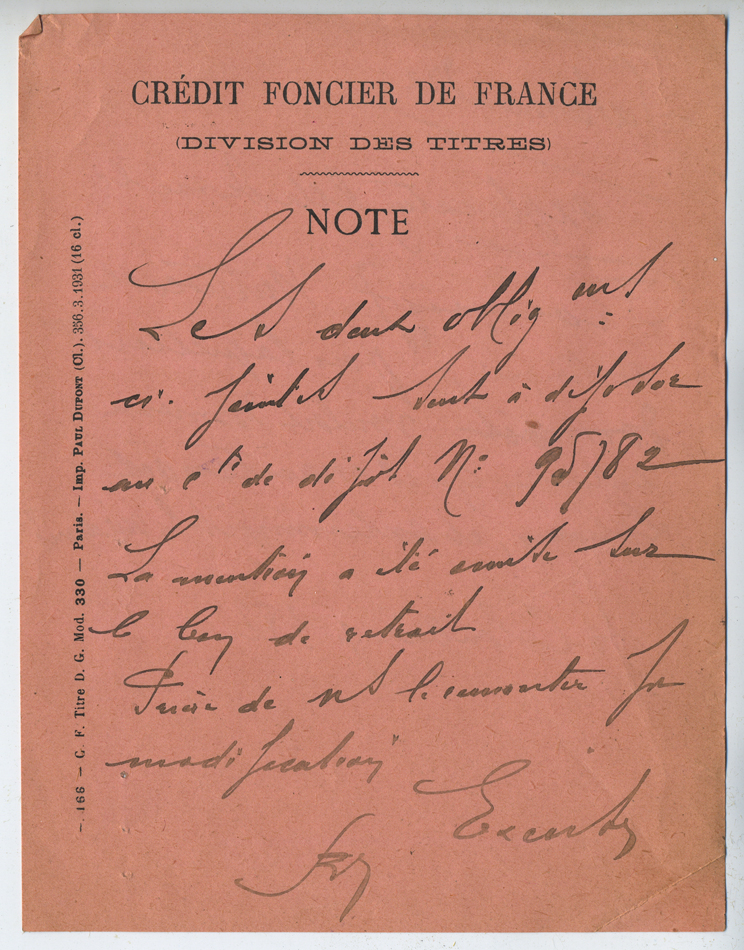 CRÉDIT FONCIER DE FRANCE
(DIVISION DES TITRES)
NOTE
Les deux oblig ons
ci-jointes sont à déposer
au cte de dépôt No 95782
La mention a été omise sur
le bon de retrait
Prière de ns le remonter pr
modification
— 166 — C. F. Titre D. G. Mod. 330 — Paris. — Imp. PAUL DUPONT (Cl.). 356.3.1931 (16 cl.)